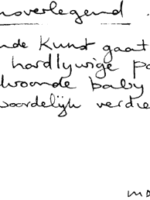 noverlegend.
nde Kunst gaat
hardlywige po
woonde baby
woordelijk verdie